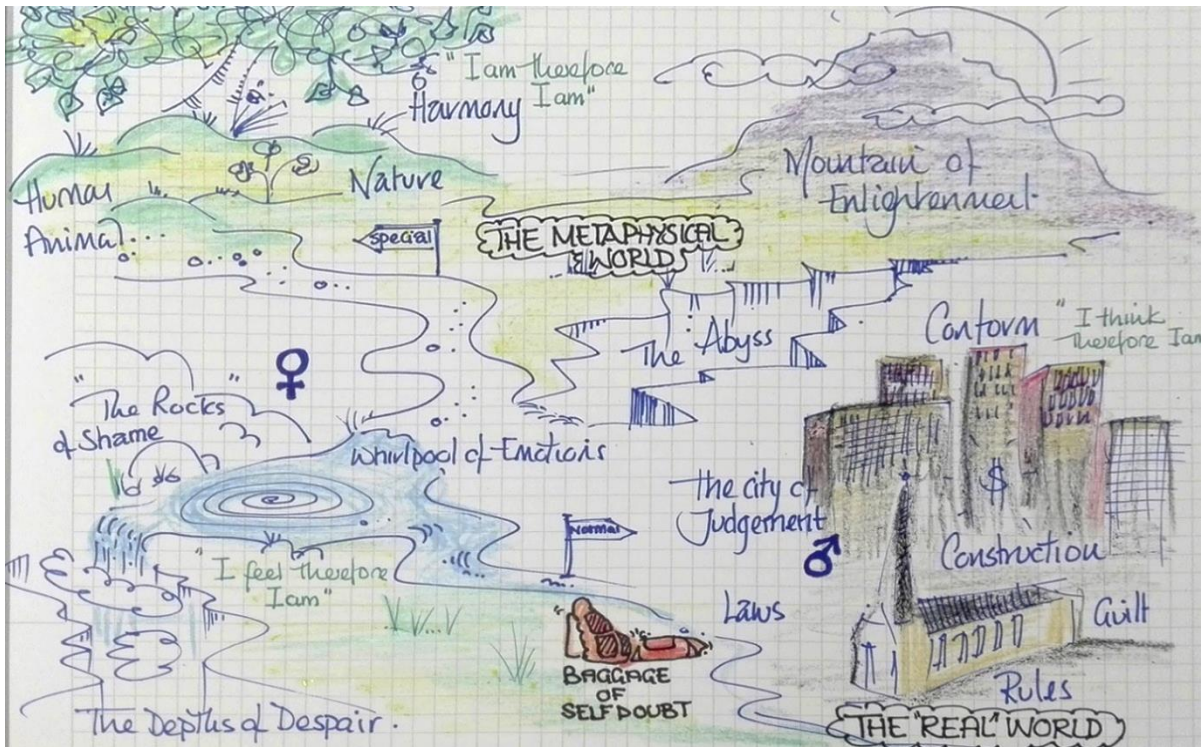 "I am therefore
I am"
Harmony
Mountain of
Enlightenment
Human
Nature
Animal...
special
THE METAPHYSICAL
WORLD
The Abyss
Conform
"I think
therefore I am
"The Rocks"
of Shame
Whirlpool of Emotions
The city of
Judgement
$
Normal
Construction
"I feel therefore
I am"
Laws
Guilt
BAGGAGE
OF
SELF DOUBT
Rules
The Depths of Despair.
THE "REAL" WORLD